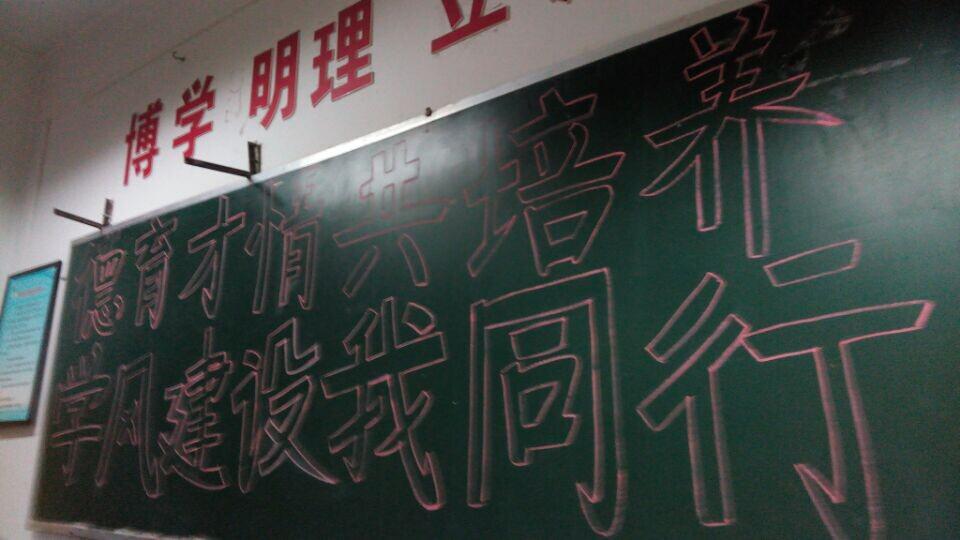 博学 明理 立
德育才情共培养
学风建设我同行